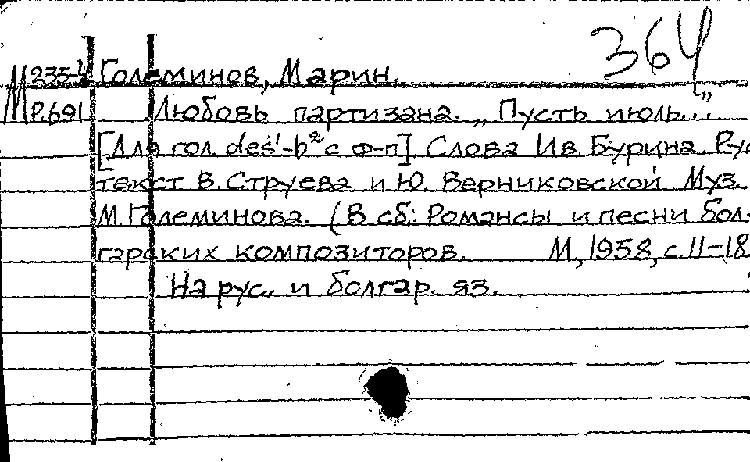 364
М 235-4 Големинов, Марин.
Р.691 Любовь партизана. „Пусть июль..."
[Для гол. des¹-b² с ф-п] Слова Ив Бурина. Рус
текст В. Струева и Ю. Верниковской Муз.
М. Големинова. (В сб: Романсы и песни бол-
гарских композиторов. М, 1958, с. 11-18
На рус. и болгар. яз.